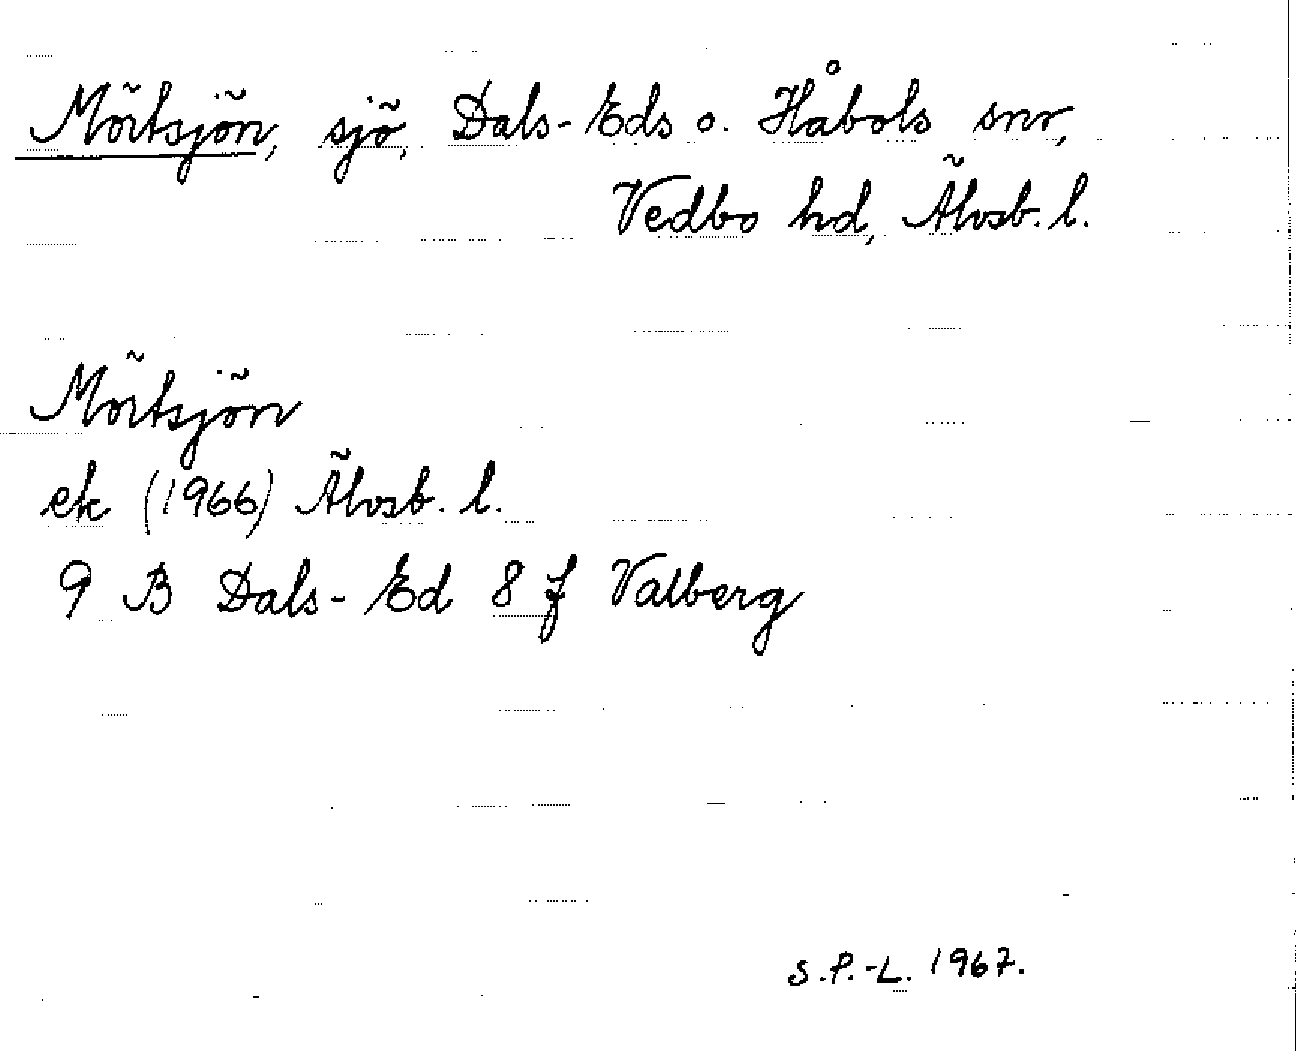 Mörtsjön, sjö, Dals-Eds o. Håbols snr,
Vedbo hd, Älvsb. l.
Mörtsjön
ek (1966) Älvsb. l.
9 B Dals-Ed 8 f Valberg
S.P.-L. 1967.